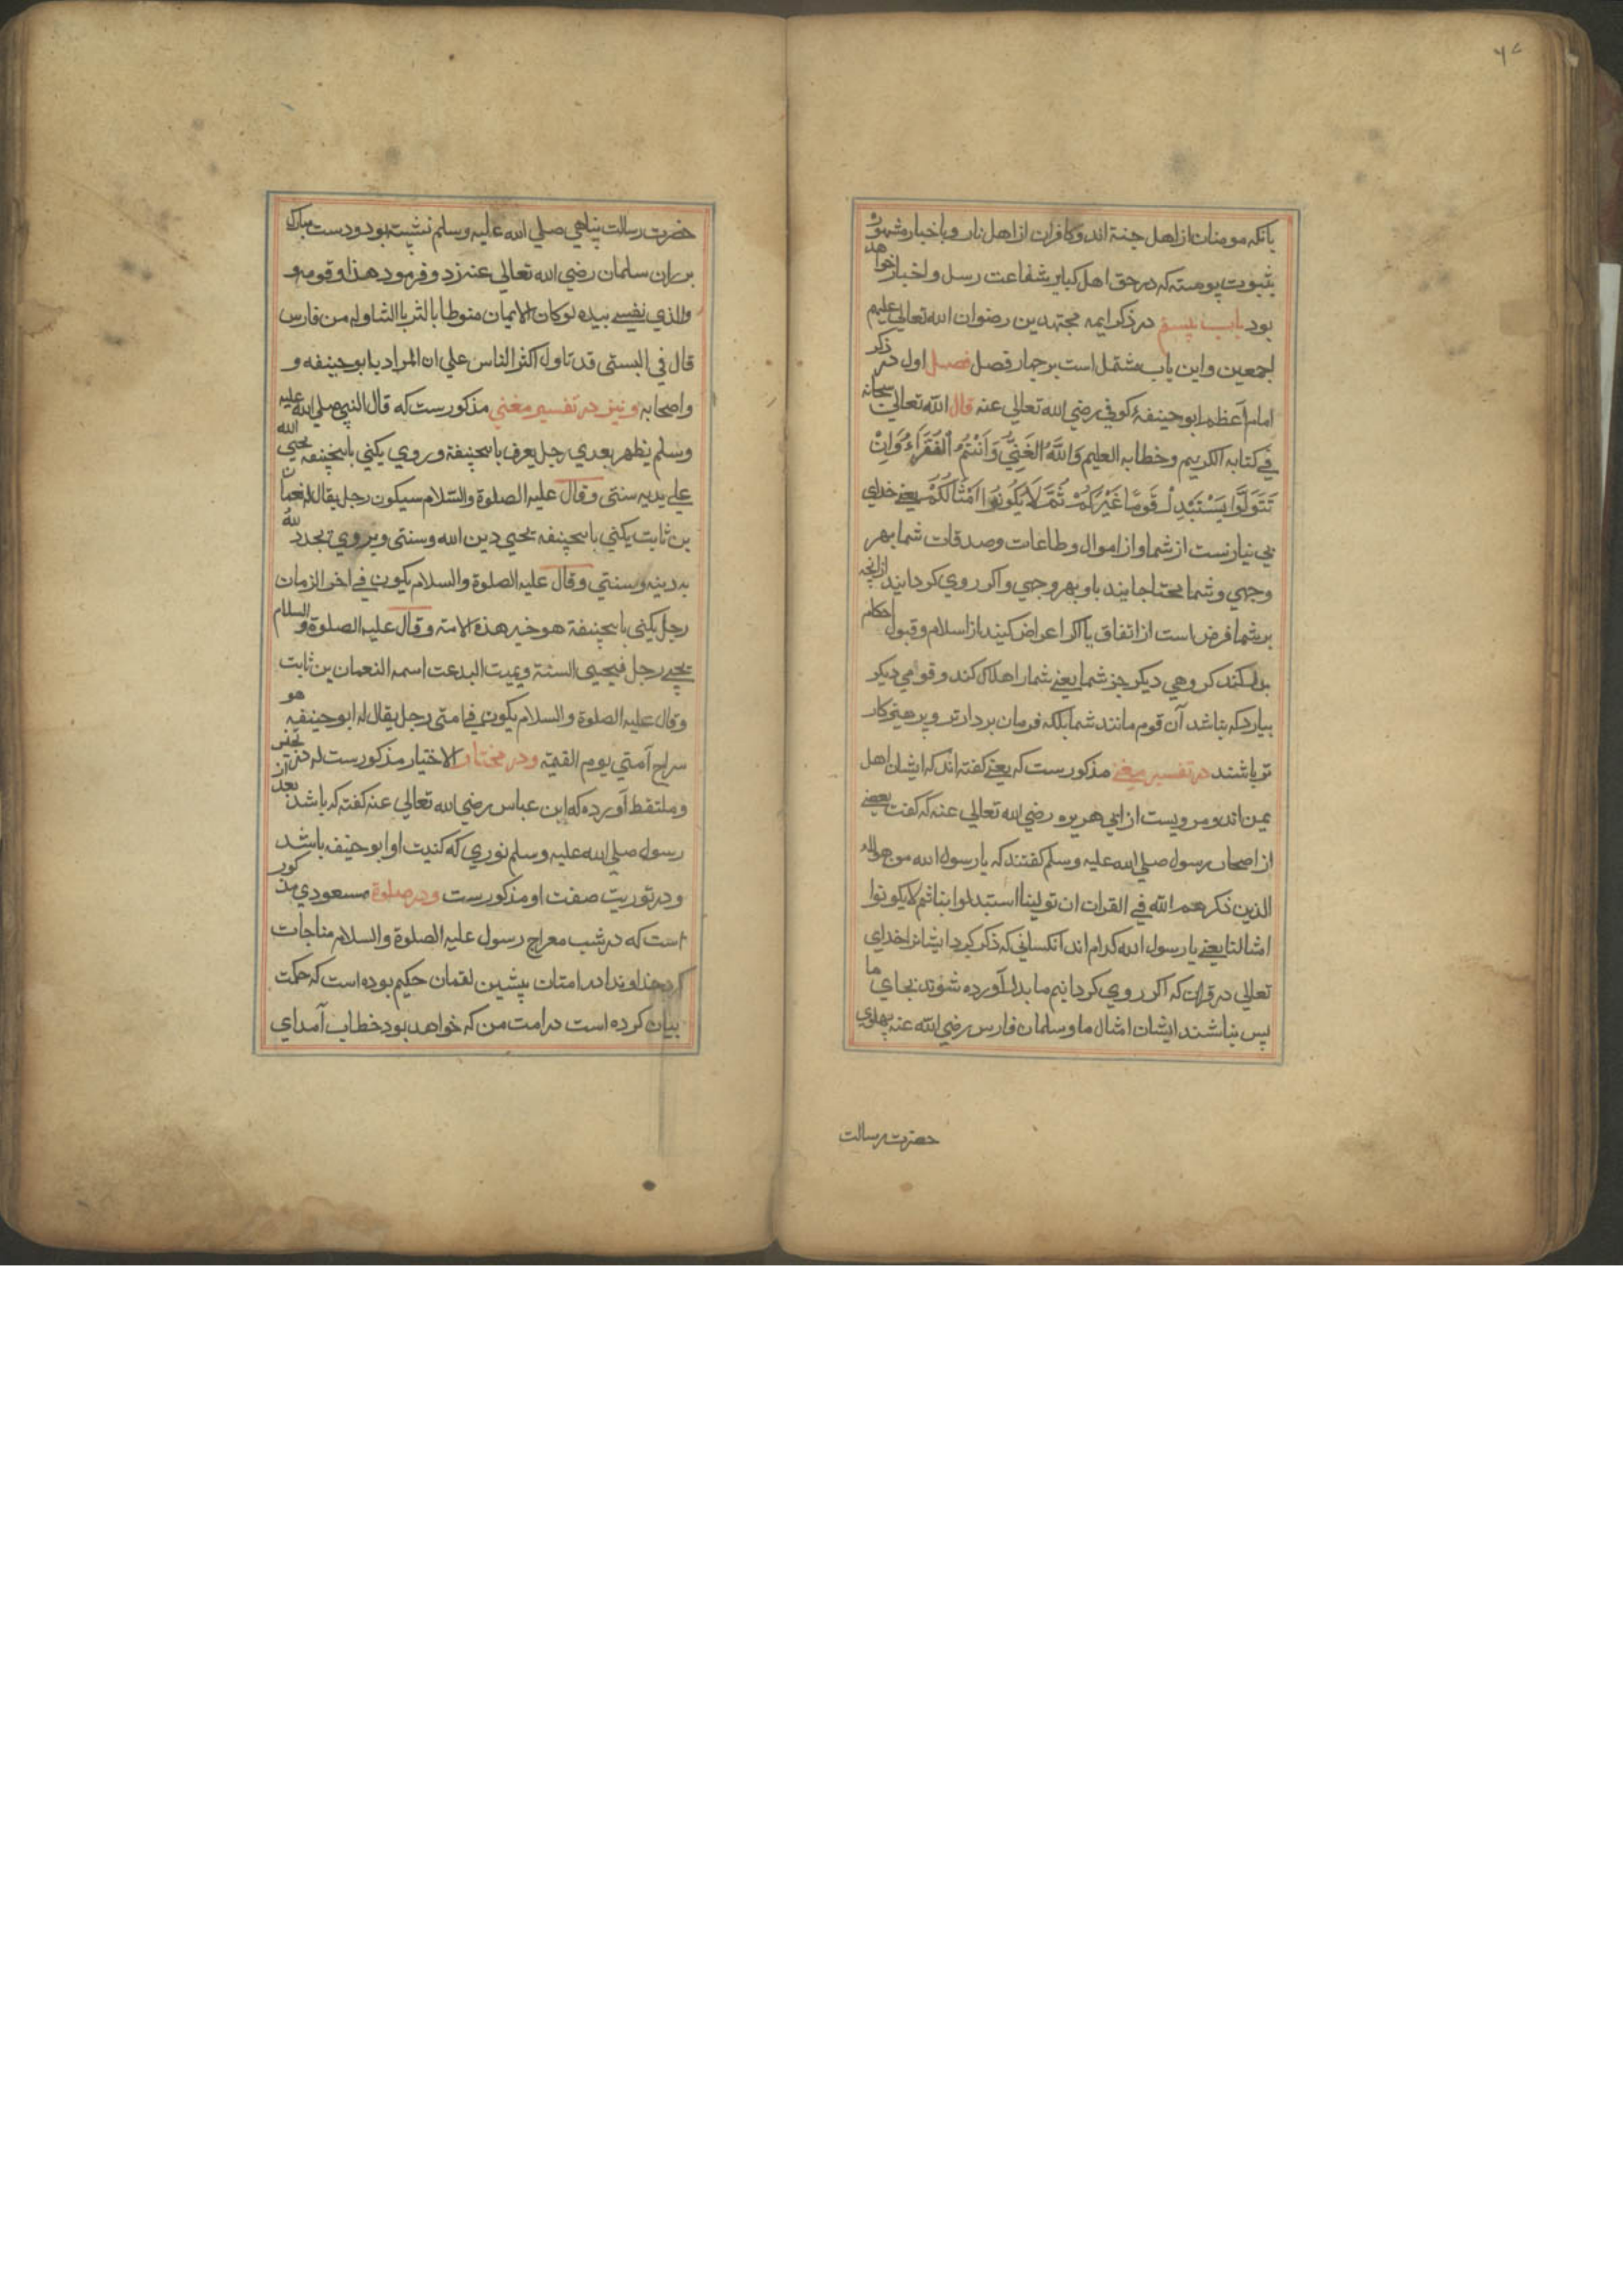 ۶۷
بانکه مومنان از اهل جنة اند و کافران از اهل نار و باخبار مشهور
بثبوت پیوسته که در حق اهل کبایر شفاعت رسل و اخیار خواهد
بود باب بیستم در ذکر ایمه مجتهدین رضوان الله تعالی علیهم
اجمعین و این باب مشتمل است بر چهار فصل فصل اول در ذکر
امام اعظم ابو حنیفهٔ کوفی رضی الله تعالی عنه قال الله تعالی سبحانه
فی کتابه الکریم و خطابه العلیم وَاللَّهُ الغَنِيُّ وَأَنْتُمُ الْفُقَرَاءُ وَإِنْ
تَتَوَلَّوْا يَسْتَبْدِلْ قَوْمًا غَيْرَكُمْ ثُمَّ لَا يَكُونُوا أَمْثَالَكُمْ یعنی خدای
بی نیازست از شما و از اموال و طاعات و صدقات شما بهر
وجهی و شما محتاجایند باو بهر وجهی و اکر روی کردانید ازانچه
بر شما فرض است از اتفاق یا اکر اعراض کنید از اسلام و قبول احکام
بدل کند کروهی دیکر جز شما یعنی شما را هلاک کند و قومی دیکر
بیارد که نباشد آن قوم مانند شما بلکه فرمان بردارتر و پرهیزکار
تر باشند در تفسیر مغنی مذکورست که یعنی کفته اند که ایشان اهل
یمن اند و مرویست از ابی هریره رضی الله تعالی عنه که کفت بعضی
از اصحاب رسول صلی الله علیه وسلم کفتند که یا رسول الله من هولاء
الذین ذکرهم الله فی القران ان تولینا استبدلوا بنا ثم لا یکونوا
امثالنا یعنی یا رسول الله کدام اند آنکسانی که ذکر کرد ایشانرا خدای
تعالی در قران که اکر روی کردانیم ما بدل آورده شوند بجای ما
پس نباشند ایشان امثال ما و سلمان فارس رضی الله عنه پهلوی
حضرت رسالت
حضرت رسالت پناهی صلی الله علیه وسلم نشسته بود و دست مبارک
بر ران سلمان رضی الله تعالی عنه زد و فرمود هذا و قومه و
والذی نفسی بیده لو کان الایمان منوطا بالثریا لتناوله من فارس
قال فی البستی قد تاول اکثر الناس علی ان المراد به ابو حنیفه و
واصحابه و نیز در تفسیر مغنی مذکورست که قال النبی صلی الله علیه
وسلم یظهر بعدی رجل یعرف بابیحنیفة و روی یکنی بابیحنیفه یحیی الله
علی یدیه سنتی وقال علیه الصلوة والسّلام سیکون رجل یقال له نعمان
بن ثابت یکنی بابیحنیفه یحیی دین الله وسنتی ویروی یجدد الله
به دینه وسنتی وقال علیه الصلوة والسلام یکون فی اخر الزمان
رجل یکنی بابیحنیفة هو خیر هذه الامة وقال علیه الصلوة والسلام
یجیء رجل فیحیی السنة ویمیت البدعت اسمه النعمان بن ثابت
وقال علیه الصلوة والسلام یکون فی امتی رجل یقال له ابو حنیفه هو
سراج آمتی یوم القیمة و در مختار الاختیار مذکورست که در تجنیس
و ملتقط آورده که ابن عباس رضی الله تعالی عنه کفته که باشد بعد از
رسول صلی الله علیه وسلم نوری که کنیت او ابو حنیف باشد
و در توریت صفت او مذکورست و در صلوة مسعودی مذکور
است که در شب معراج رسول علیه الصلوة والسلام مناجات
کرد خداوندا در امتان پیشین لقمان حکیم بوده است که حکمت
بیان کرده است در امت من که خواهد بود خطاب آمد ای